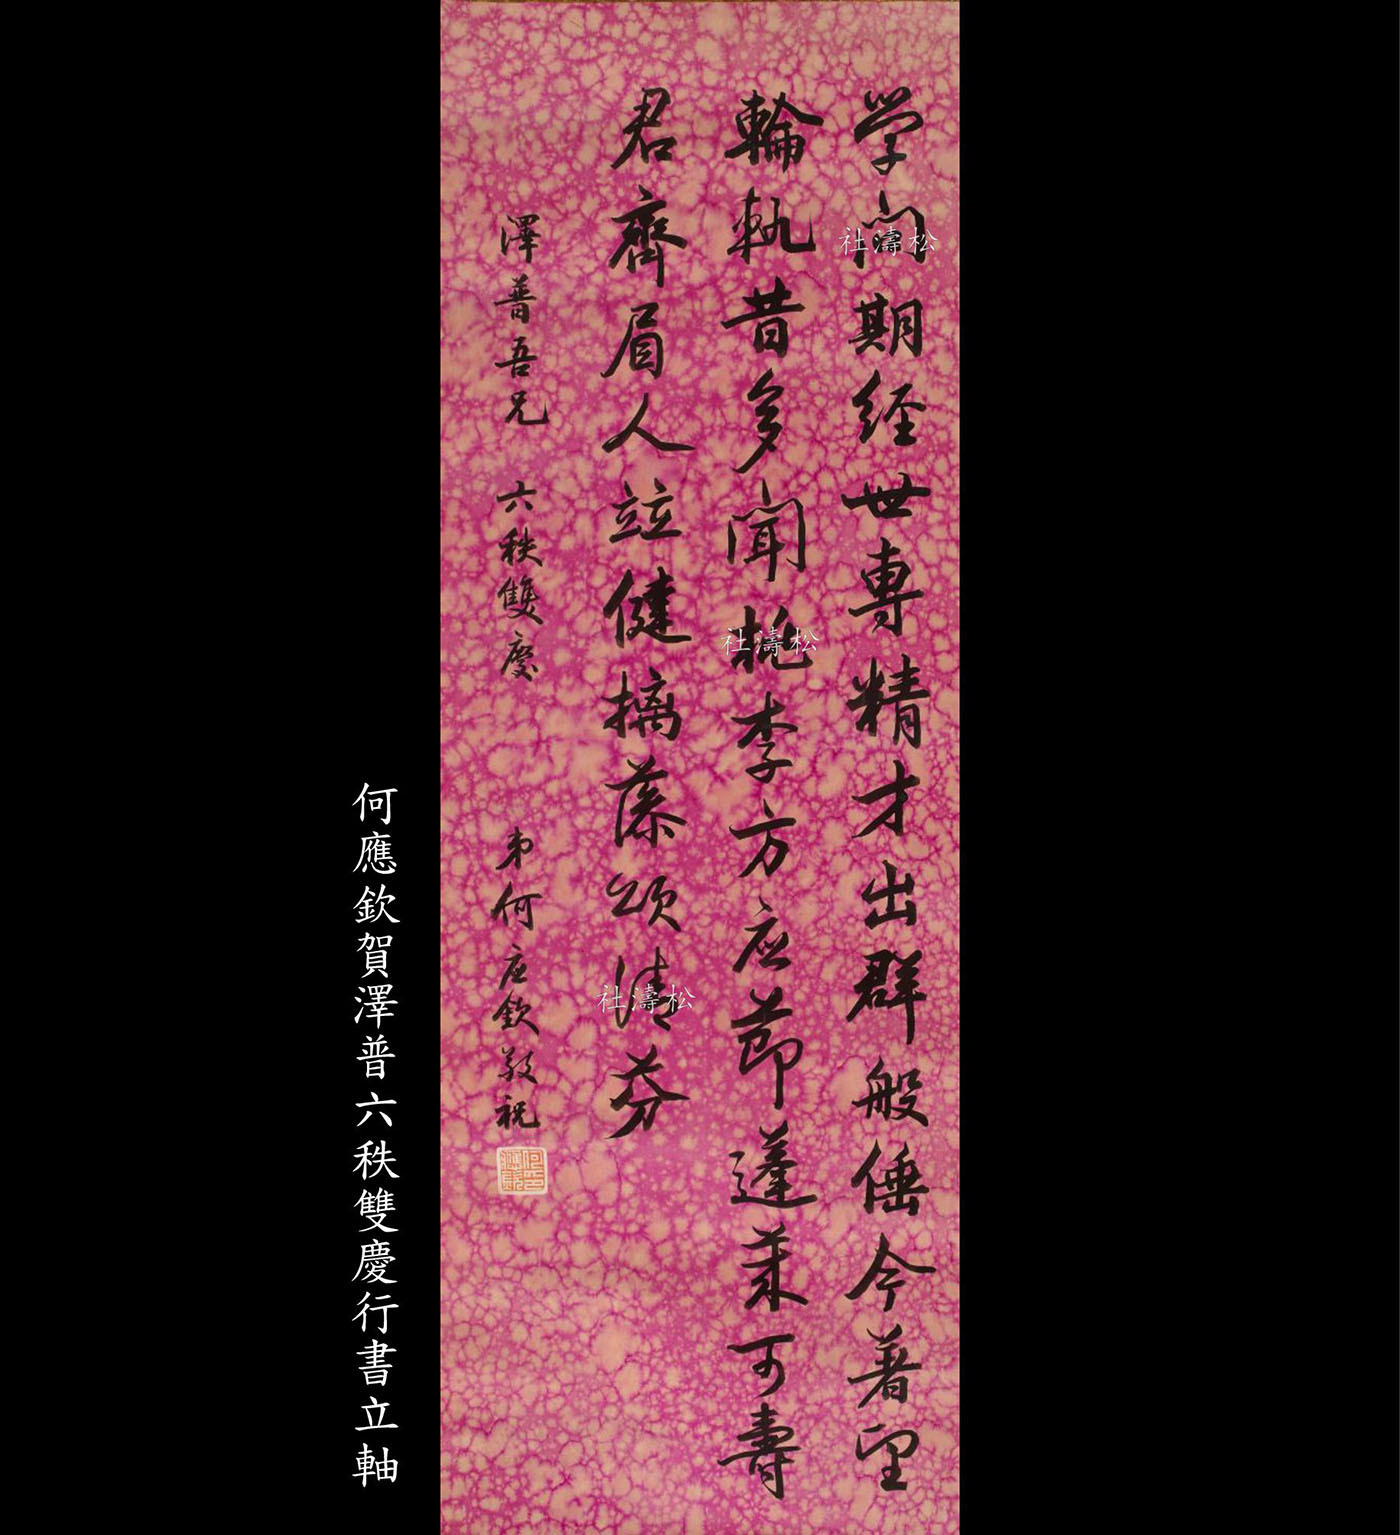 学問期經世專精才出群般倕今著望
輪執昔多聞桃李方应節蓬萊可壽
君齊眉人竝健摛藻頌清芬
澤普吾兄 六秩雙慶 弟何应欽敬祝
何應欽賀澤普六秩雙慶行書立軸
松濤社
松濤社
松濤社